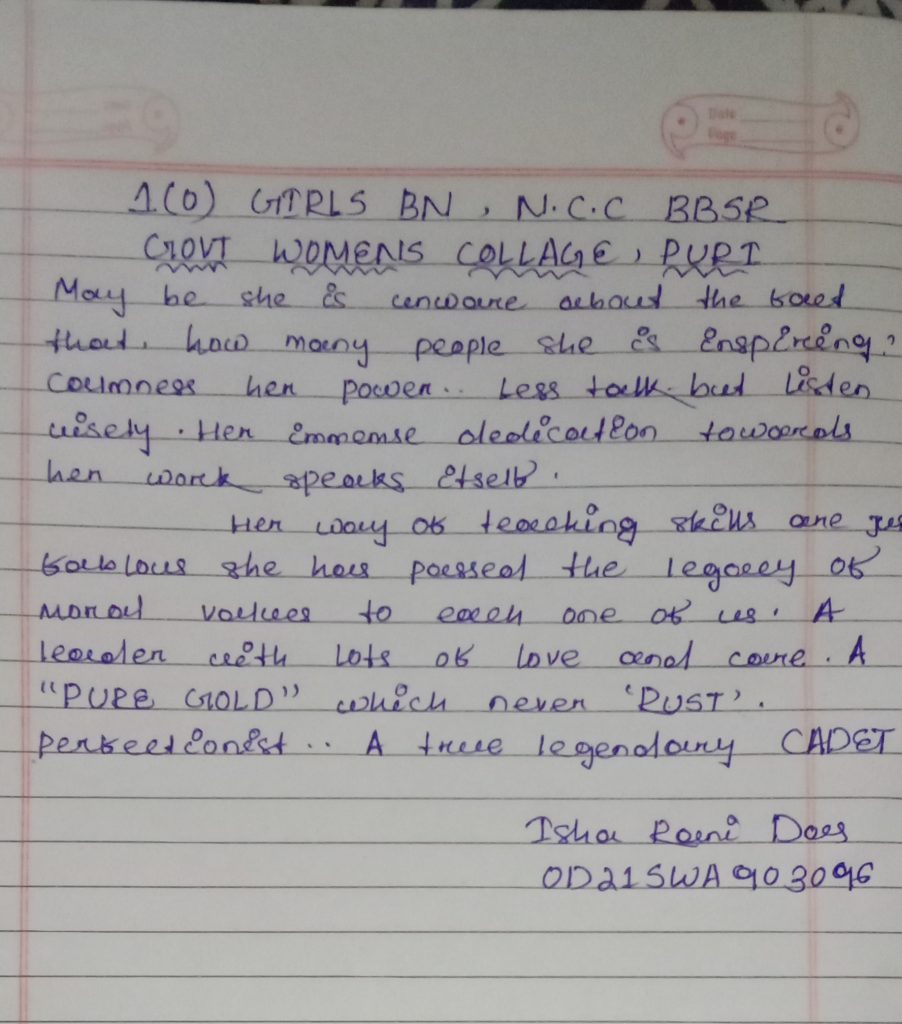 Date
Page
1(O) GIRLS BN, N.C.C BBSR
GOVT WOMENS COLLAGE, PURI
May be she is unware about the fact
that. how many people she is inspiring.
Coumness her power.. Less talk but listen
wisely. Her immemse dedication towards
her work speaks itself.
Her way of teaching skills are
fabulous she has passed the legacy of
moral values to each one of us. A
leader with lots of love and care. A
"PURE GOLD" which never 'RUST'.
perfectionist.. A true legendary CADET
Isha Rani Das
OD21SWA903096